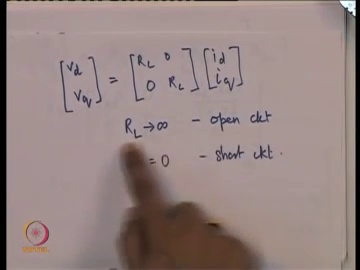 [vd vq] = [RL 0 0 RL] [id iq]
RL → ∞ – open ckt
= 0 – short ckt.